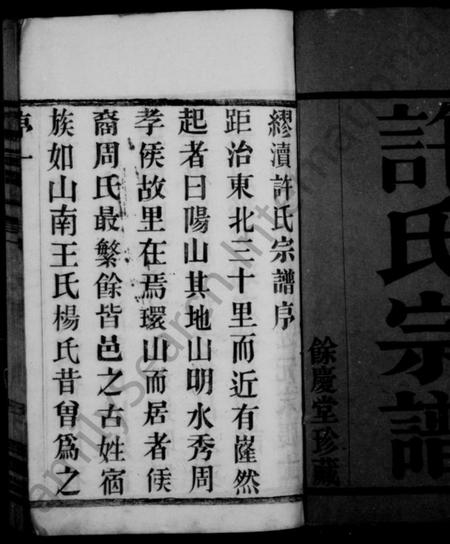 許氏宗譜
餘慶堂珍藏
繆瀆許氏宗譜序
距治東北三十里而近有㠑然
起者曰陽山其地山明水秀周
孝侯故里在焉環山而居者侯
裔周氏最繁餘皆邑之古姓宿
族如山南王氏楊氏昔曾為之
序一
FamilySearch International